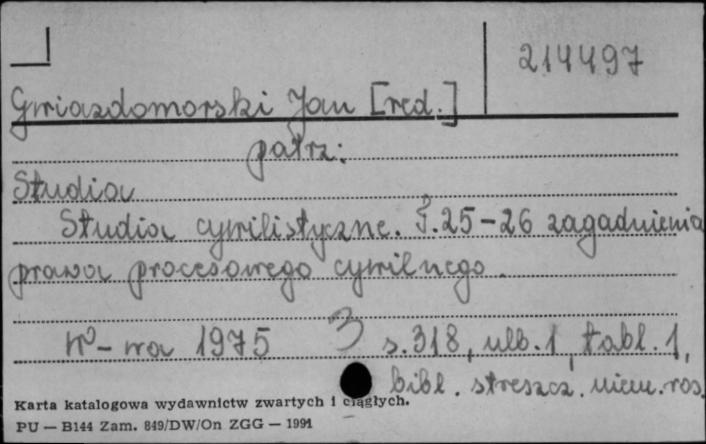 214497
Gwiazdomorski Jan [red.]
patrz:
Studia
Studia cywilistyczne. T.25-26 zagadnienia
prawa procesowego cywilnego.
W-wa 1975 3 s.318, ulb.1, tabl.1,
bibl. streszcz. niem. ros.
Karta katalogowa wydawnictw zwartych i ciągłych.
PU — B144 Zam. 849/DW/On ZGG — 1991